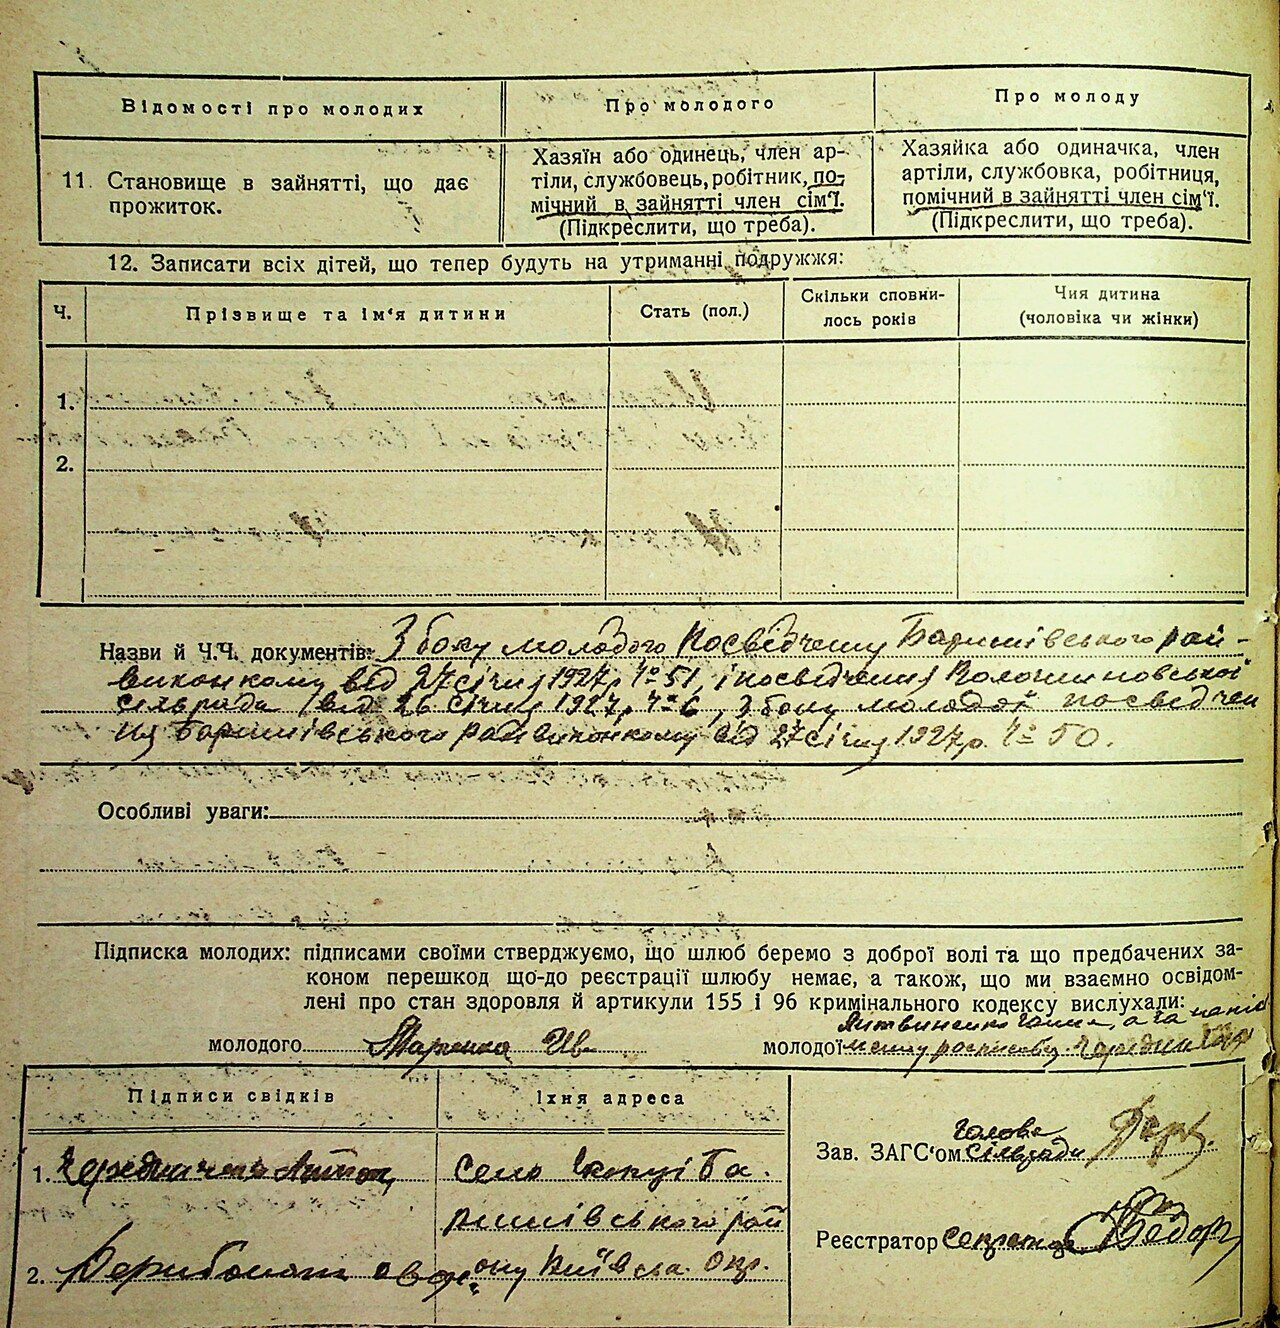 Відомості про молодих
Про молодого
Про молоду
11. Становище в зайнятті, що дає
прожиток.
Хазяїн або одинець, член ар-
тіли, службовець, робітник, по-
мічний в зайнятті член сім'ї.
(Підкреслити, що треба).
Хазяйка або одиначка, член
артіли, службовка, робітниця,
помічний в зайнятті член сім'ї.
(Підкреслити, що треба).
12. Записати всіх дітей, що тепер будуть на утриманні подружжя:
Ч.
Прізвище та ім'я дитини
Стать (пол.)
Скільки сповни-
лось років
Чия дитина
(чоловіка чи жінки)
1.
2.
Назви й Ч.Ч. документів: З боку молодого Посвідчену Баришівського рай-
виконкому від 27 січня 1927р. Ч= 51, і посвідчення Волошиновської
сільради від 26 січня 1927р. Ч= 6, З боку молодої посвідчен
ня Баришівського Райвиконкому від 27 січня 1927р. Ч= 50.
Особливі уваги:
Підписка молодих: підписами своїми стверджуємо, що шлюб беремо з доброї волі та що предбачених за-
коном перешкод що-до реєстрації шлюбу немає, а також, що ми взаємно освідом-
лені про стан здоровля й артикули 155 і 96 кримінального кодексу вислухали:
молодого
молодої Литвиненко а за
Підписи свідків
Їхня адреса
1.
село Ба.
ришівського рай
2.
ону Київськ. Окр.
Зав. ЗАГС'ом Голова
сільради
Реєстратор секретар